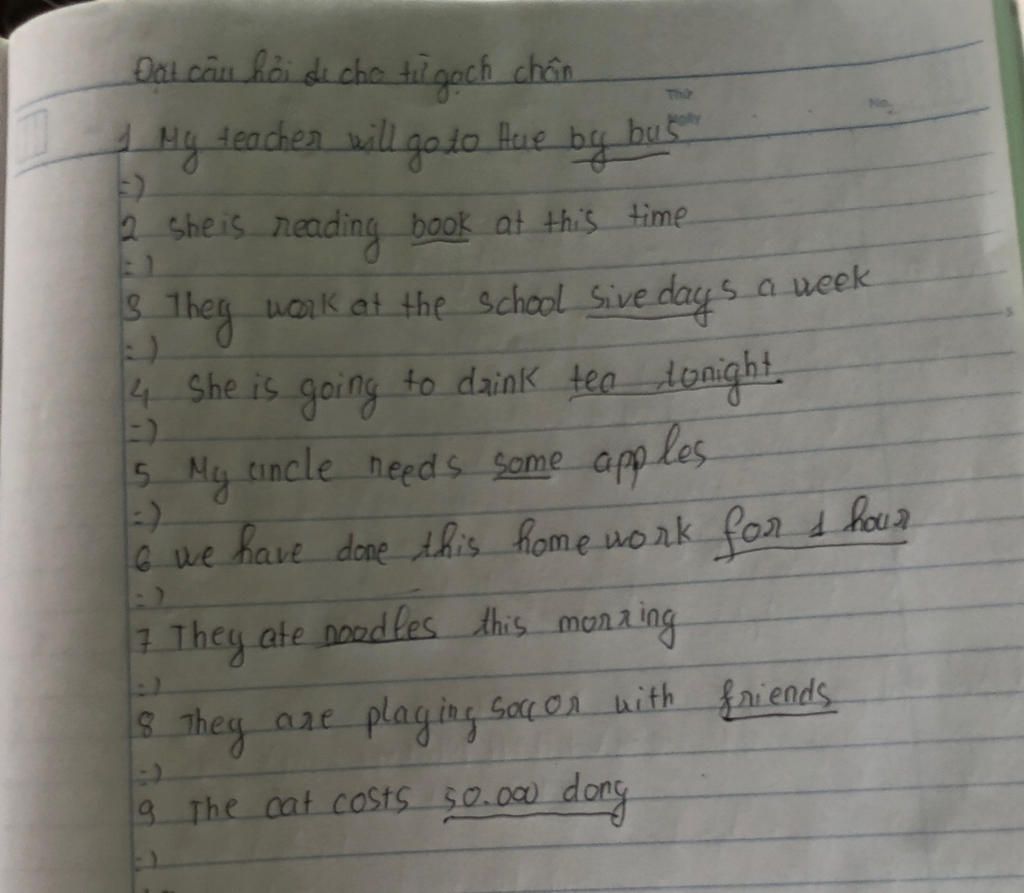 Đặt câu hỏi cho từ gạch chân
Thứ
No.
1 My teacher will go to Hue by bus
=)
2 She is reading book at this time
=)
3 They work at the school sive days a week
=)
4 She is going to drink tea tonight.
=)
5 My uncle needs some apples
=)
6 we have done this home work for 1 hour
=)
7 They ate noodles this morning
=)
8 They are playing soccor with friends
=)
9 The cat costs 50.000 dong
=)